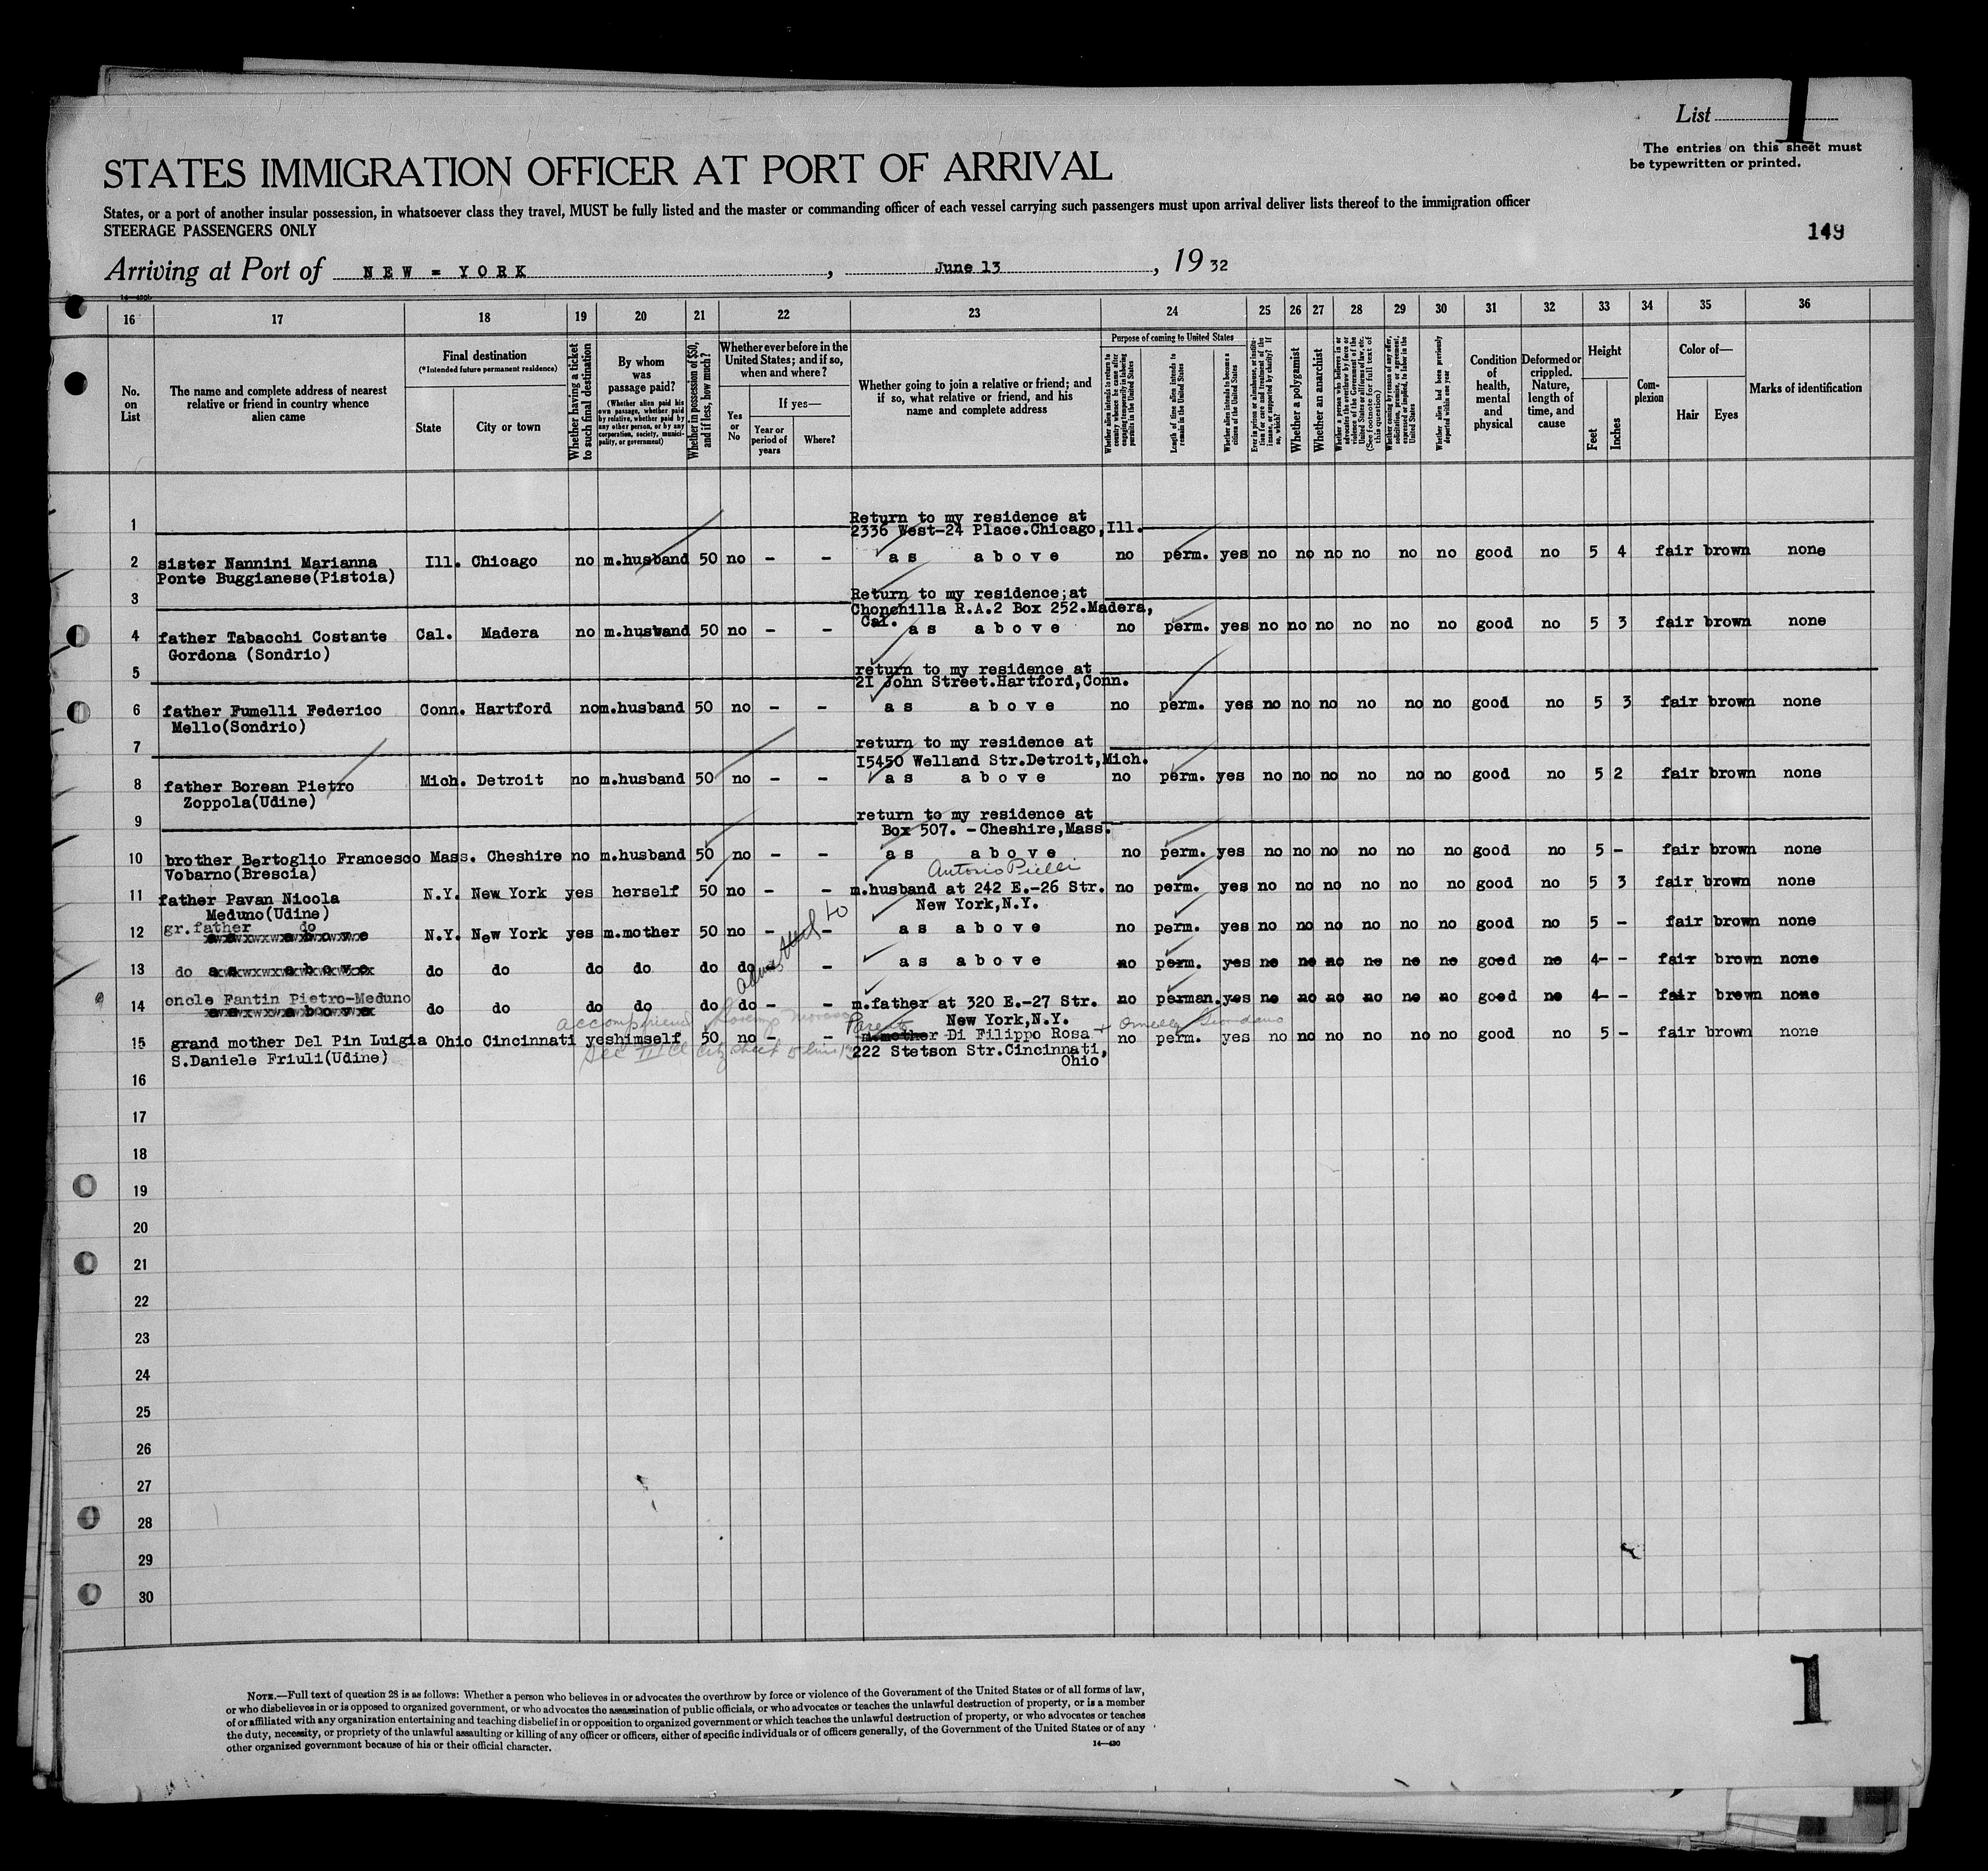 List 1
The entries on this sheet must
be typewritten or printed.
STATES IMMIGRATION OFFICER AT PORT OF ARRIVAL
States, or a port of another insular possession, in whatsoever class they travel, MUST be fully listed and the master or commanding officer of each vessel carrying such passengers must upon arrival deliver lists thereof to the immigration officer
STEERAGE PASSENGERS ONLY
149
Arriving at Port of NEW = YORK, June 13, 19 32
16 17 18 19 20 21 22 23 24 25 26 27 28 29 30 31 32 33 34 35 36
No.
on
List
The name and complete address of nearest
relative or friend in country whence
alien came
Final destination
(*Intended future permanent residence)
State
City or town
Whether having a ticket
to such final destination
By whom
was
passage paid?
(Whether alien paid his
own passage, whether paid
by relative, whether paid by
any other person, or by any
corporation, society, munici-
pality, or government)
Whether in possession of $50,
and if less, how much?
Whether ever before in the
United States; and if so,
when and where?
Yes
or
No
If yes—
Year or
period of
years
Where?
Whether going to join a relative or friend; and
if so, what relative or friend, and his
name and complete address
Purpose of coming to United States
Whether alien intends to return to
country whence he came after
engaging temporarily in laboring
pursuits in the United States
Length of time alien intends to
remain in the United States
Whether alien intends to become a
citizen of the United States
Ever in prison or almshouse, or institu-
tion for care and treatment of the
insane, or supported by charity? If
so, which?
Whether a polygamist
Whether an anarchist
Whether a person who believes in or
advocates the overthrow by force or
violence of the Government of the
United States or all forms of law, etc.
(See footnote for full text of
this question)
Whether coming by reason of any offer,
solicitation, promise, or agreement,
expressed or implied, to labor in the
United States
Whether alien had been previously
deported within one year
Condition
of
health,
mental
and
physical
Deformed or
crippled.
Nature,
length of
time, and
cause
Height
Feet
Inches
Com-
plexion
Color of—
Hair
Eyes
Marks of identification
1 Return to my residence at
2336 West-24 Place.Chicago,Ill.
2 sister Nannini Marianna Ill. Chicago no m.husband 50 no - - as above no perm. yes no no no no no no good no 5 4 fair brown none
Ponte Buggianese(Pistoia)
3 Return to my residence;at
Chonchilla R.A.2 Box 252.Madera,
Cal.
4 father Tabacchi Costante Cal. Madera no m.husvand 50 no - - as above no perm. yes no no no no no no good no 5 3 fair brown none
Gordona (Sondrio)
5 return to my residence at
21 John Street.Hartford,Conn.
6 father Fumelli Federico Conn. Hartford no m.husband 50 no - - as above no perm. yes no no no no no no good no 5 3 fair brown none
Mello(Sondrio)
7 return to my residence at
15450 Welland Str.Detroit,Mich.
8 father Borean Pietro Mich. Detroit no m.husband 50 no - - as above no perm. yes no no no no no no good no 5 2 fair brown none
Zoppola(Udine)
9 return to my residence at
Box 507. - Cheshire,Mass.
10 brother Bertoglio Francesco Mass. Cheshire no m.husband 50 no - - as above no perm. yes no no no no no no good no 5 - fair brown none
Vobarno(Brescia)
Antonio
11 father Pavan Nicola N.Y. New York yes herself 50 no - - m.husband at 242 E.-26 Str. no perm. yes no no no no no no good no 5 3 fair brown none
Meduno(Udine) New York,N.Y.
12 gr.father do N.Y. New York yes m.mother 50 no - - as above no perm. yes no no no no no no good no 5 - fair brown none
as above
13 do as above do do do do do do - - as above no perm. yes no no no no no no good no 4- - fair brown none
14 oncle Fantin Pietro-Meduno do do do do do do - - m.father at 320 E.-27 Str. no perman. yes no no no no no no good no 4- - fair brown none
as above New York,N.Y.
Parents
15 grand mother Del Pin Luigia Ohio Cincinnati yes himself 50 no - - m.mother Di Filippo Rosa no perm. yes no no no no no no good no 5 - fair brown none
S.Daniele Friuli(Udine) 222 Stetson Str.Cincinnati,
Ohio
16
17
18
19
20
21
22
23
24
25
26
27
28
29
30
NOTE.—Full text of question 28 is as follows: Whether a person who believes in or advocates the overthrow by force or violence of the Government of the United States or of all forms of law,
or who disbelieves in or is opposed to organized government, or who advocates the assassination of public officials, or who advocates or teaches the unlawful destruction of property, or is a member
of or affiliated with any organization entertaining and teaching disbelief in or opposition to organized government or which teaches the unlawful destruction of property, or who advocates or teaches
the duty, necessity, or propriety of the unlawful assaulting or killing of any officer or officers, either of specific individuals or of officers generally, of the Government of the United States or of any
other organized government because of his or their official character.
14—430
1